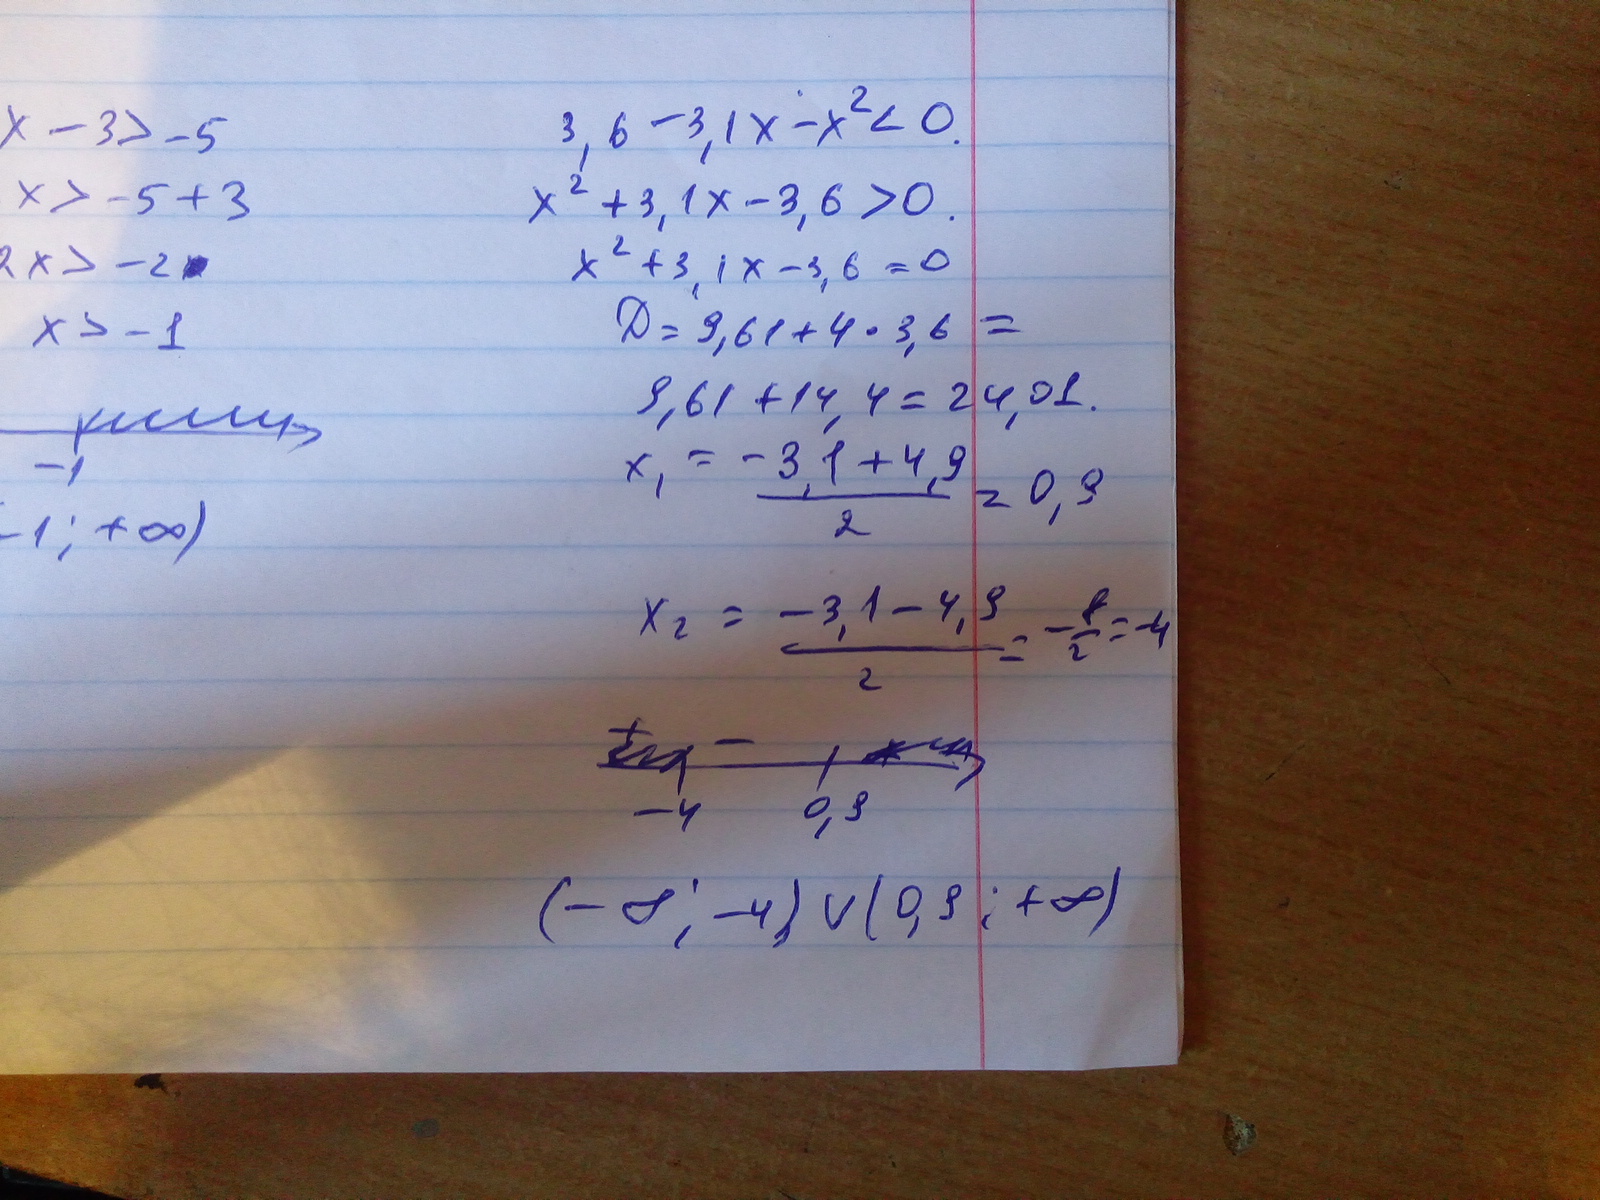 x - 3 > -5
x > -5 + 3
2x > -2
x > -1
-1
-1; +∞)
3,6 - 3,1x - x² < 0.
x² + 3,1x - 3,6 > 0.
x² + 3,1x - 3,6 = 0
D = 9,61 + 4 · 3,6 =
9,61 + 14,4 = 24,01.
x₁ = (-3,1 + 4,9)/2 = 0,9
x₂ = (-3,1 - 4,9)/2 = -8/2 = -4
+ - +
-4 0,9
(-∞; -4) ∪ (0,9; +∞)